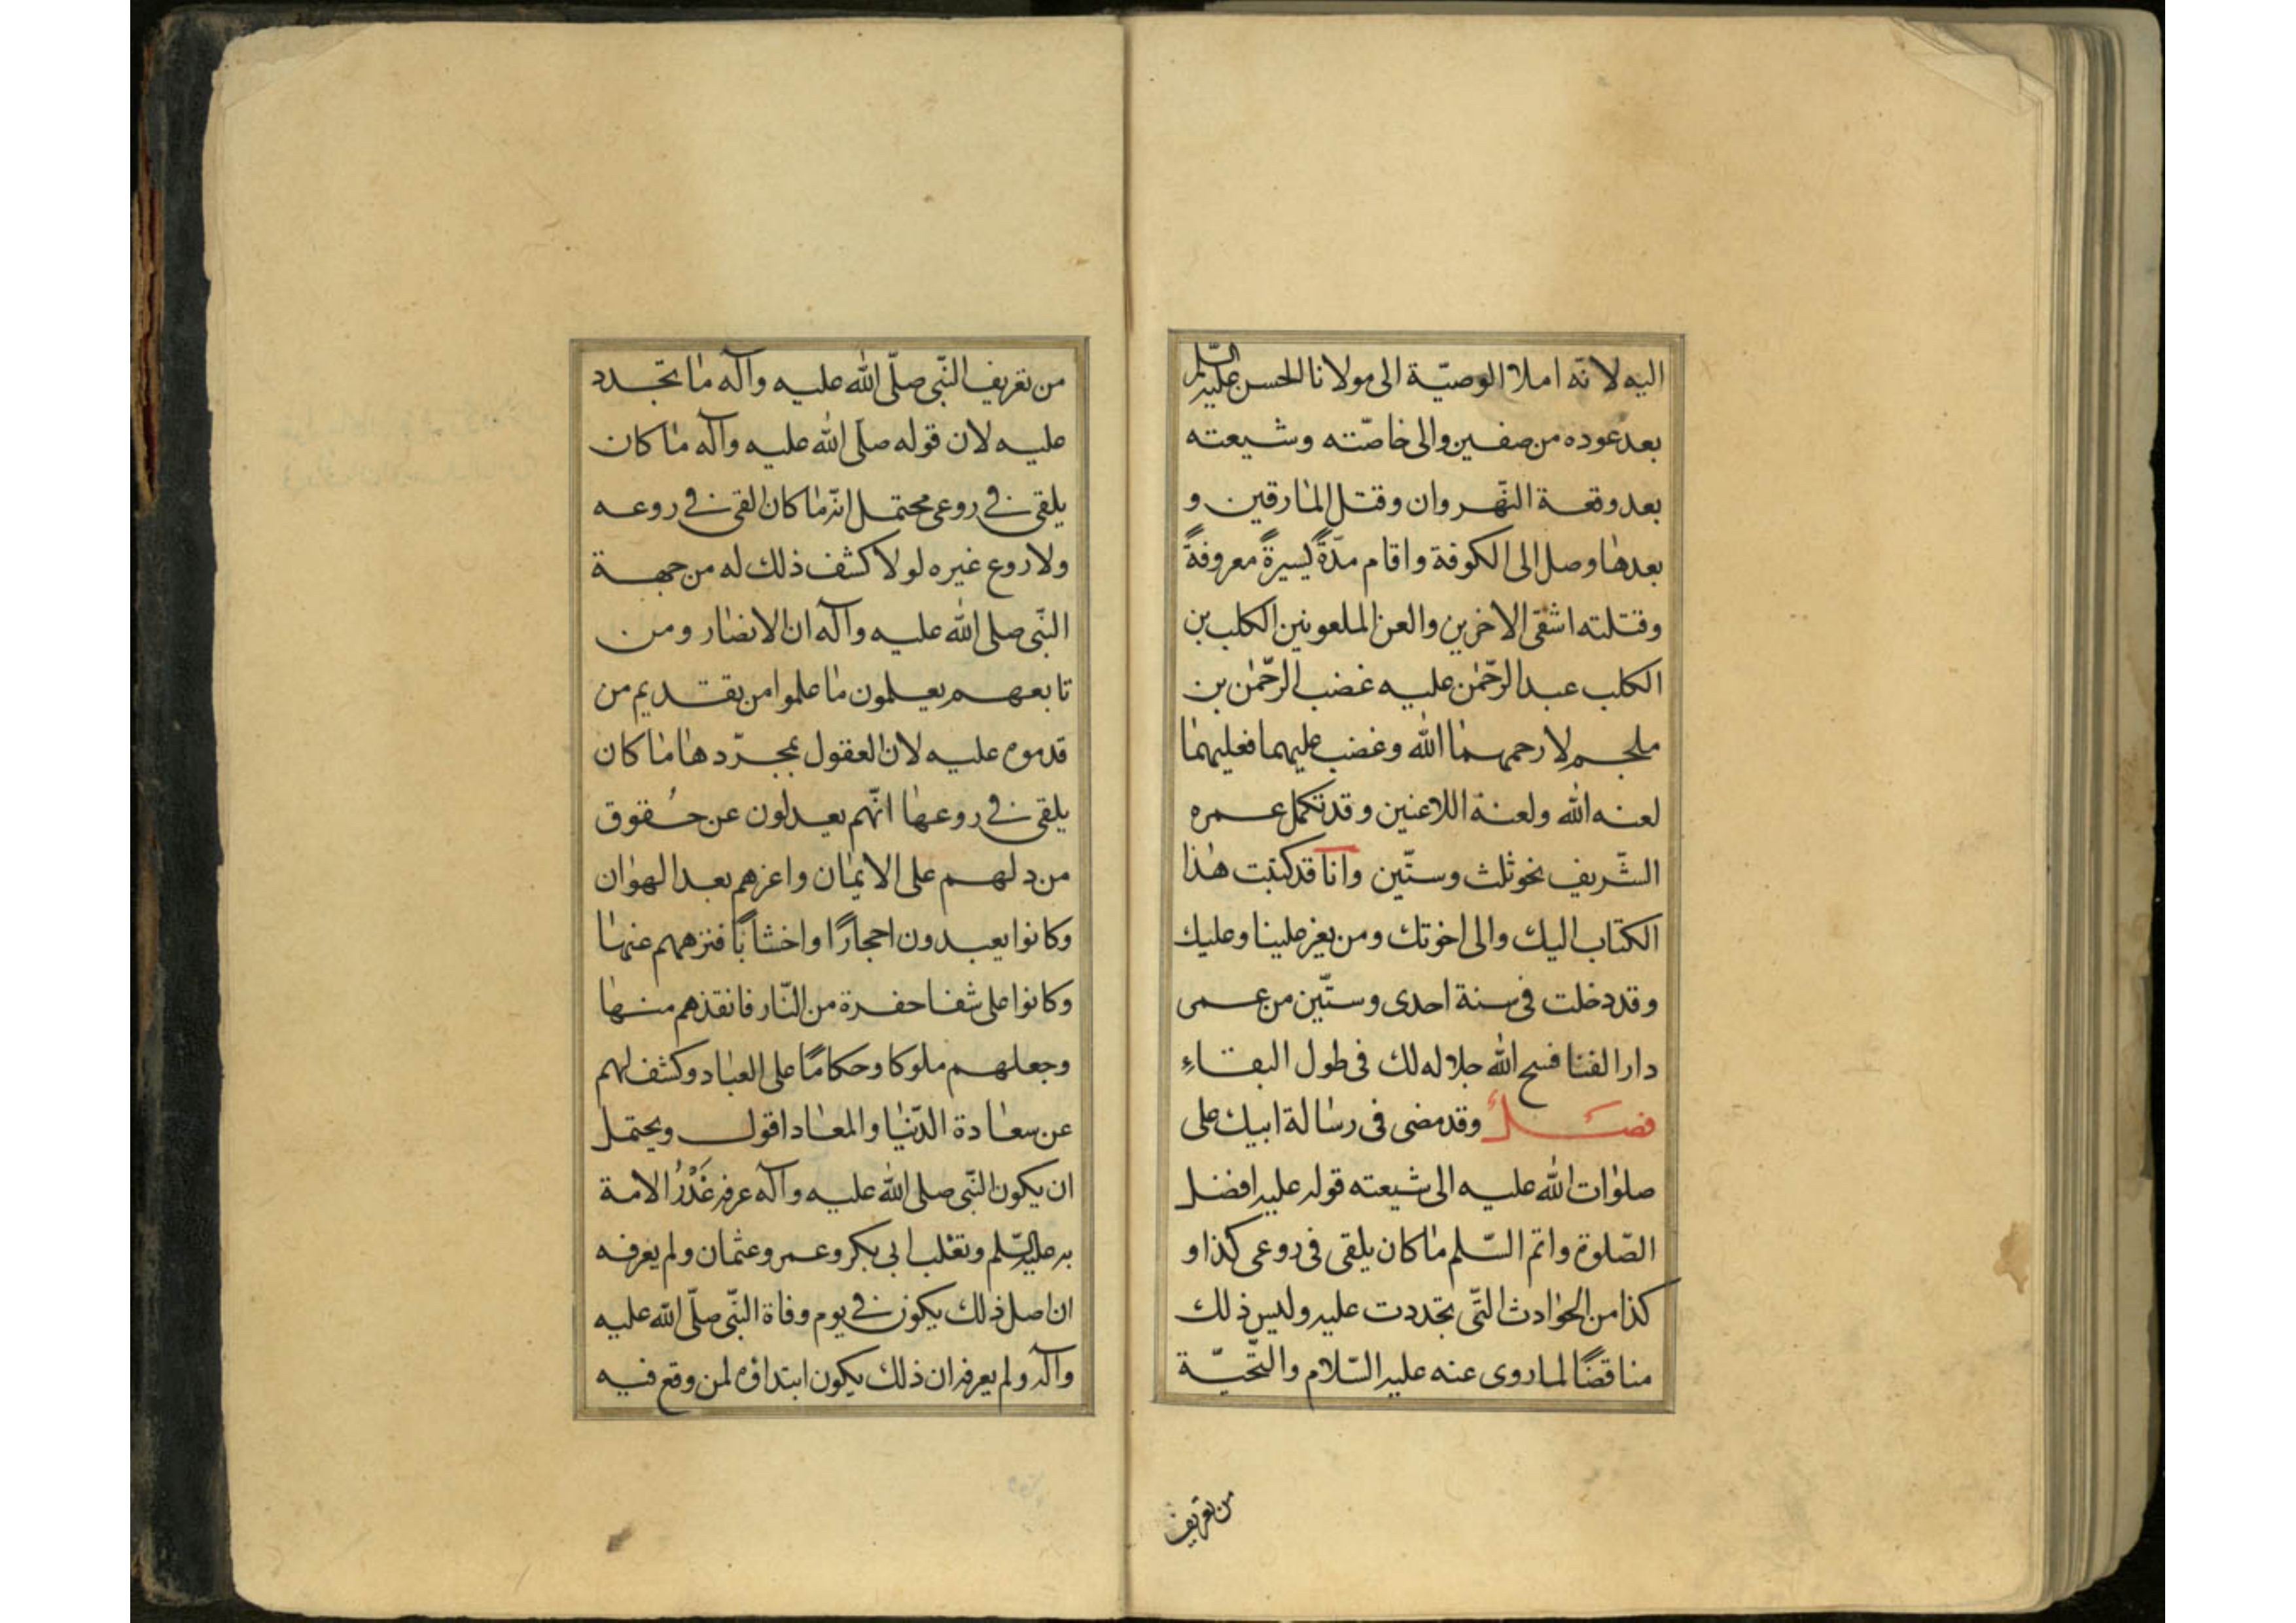 اليه لانه املا الوصيّة الى مولانا الحسن عليه السّلم
بعد عوده من صفين والى خاصّته وشيعته
بعد وقعة النّهروان وقتل المارقين و
بعدها وصل الى الكوفة واقام مدّةً يسيرةً معروفةً
وقتلته اشقى الاخرين والعن الملعونين الكلب بن
الكلب عبد الرّحمٰن عليه غضب الرّحمٰن بن
ملجم لا رحمهما الله وغضب عليهما فعليهما
لعنه الله ولعنة اللاعنين وقد تكمل عمره
الشّريف نحو ثلث وستّين وانا قد كتبت هذا
الكتاب اليك والى اخوتك ومن يعز علينا وعليك
وقد دخلت فى سنة احدى وستّين من عمرى
دار الفنا فسح الله جلاله لك فى طول البقاء
فصل وقد مضى فى رسالة ابيك على
صلوات الله عليه الى شيعته قوله عليه افضل
الصّلوة واتم السّلم ما كان يلقى فى روعى كذا و
كذا من الحوادث التّى تجددت عليه وليس ذلك
مناقضًا لما روى عنه عليه السّلام والتّحيّة
من تعريف
من تعريف النّبى صلّى الله عليه وآله ما تجّدد
عليه لان قوله صلّى الله عليه وآله ما كان
يلقى فى روعى محتمل انّه ما كان القى فى روعه
ولا روع غيره لولا كشف ذلك له من جهة
النّبى صلى الله عليه وآله ان الانصار ومن
تابعهم يعلمون ما علموا من تقديم من
قدموه عليه لان العقول بمجرّدها ما كان
يلقى فى روعها انّهم يعدلون عن حُقوق
من دلهم على الايمان واعزهم بعد الهوان
وكانوا يعبدون احجارًا واخشابًا فنزههم عنها
وكانوا على شفا حفرة من النّار فانقذهم منها
وجعلهم ملوكا وحكامًا على العباد وكشف لهم
عن سعادة الدّنيا والمعاد اقول ويحتمل
ان يكون النّبى صلى الله عليه وآله عرفه غَدْرُ الامة
به عليه السّلم وتغلب ابى بكر وعمر وعثمان ولم يعرفه
ان اصل ذلك يكون فى يوم وفاة النّبى صلّى الله عليه
وآله ولم يعرفه ان ذلك يكون ابتداؤه لمن وقع فيه